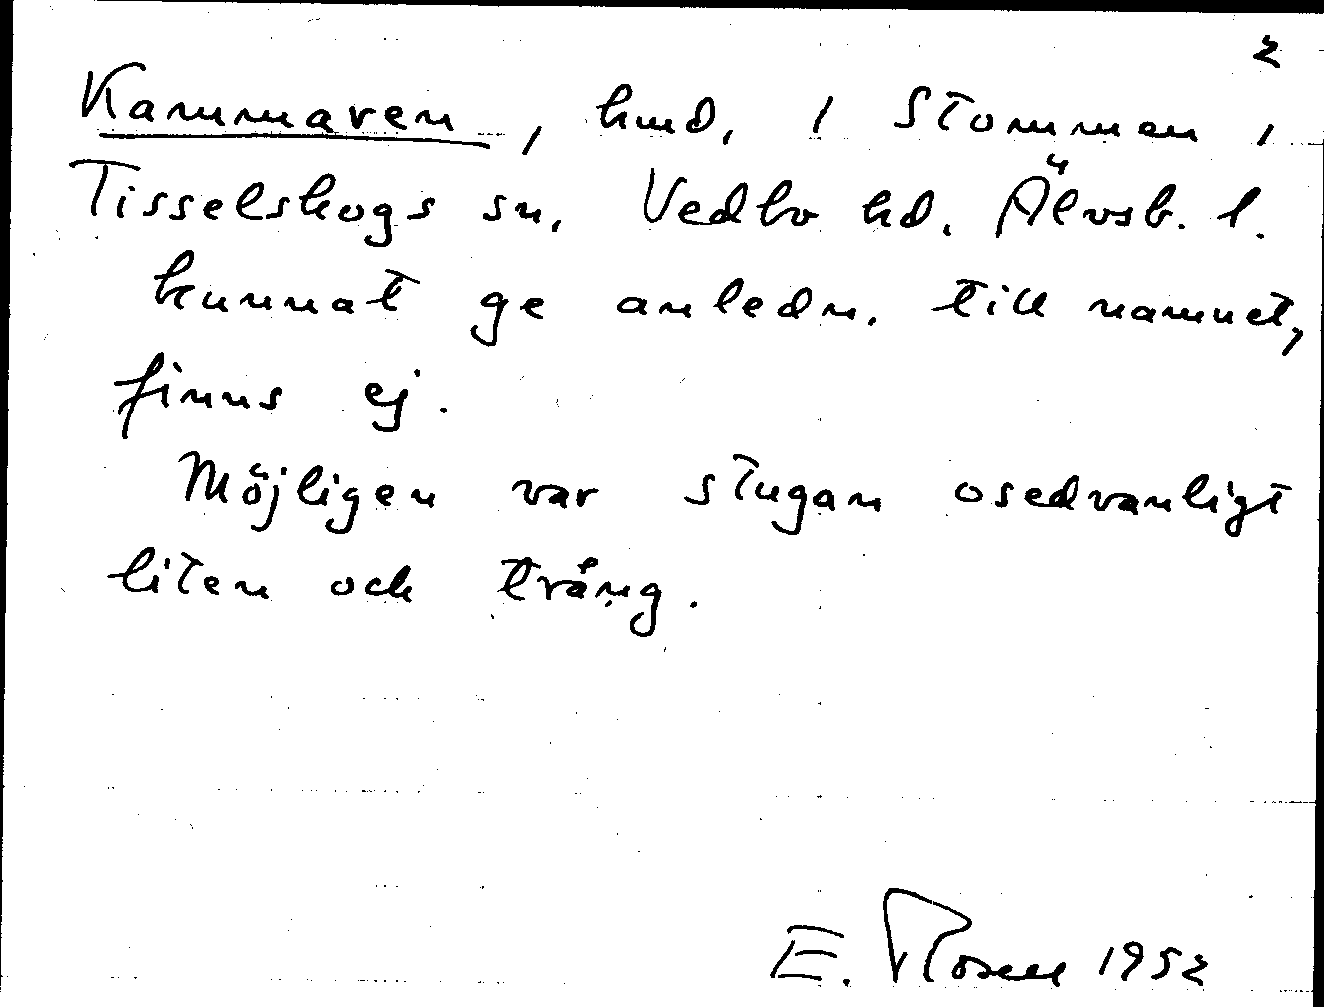 2
Kammaren, hmd, i Stommen,
Tisselskogs sn, Vedbo hd. Älvsb. l.
kunnat ge anledn. till namnet,
finns ej.
Möjligen var stugan osedvanligt
liten och trång.
E. Rosell 1952